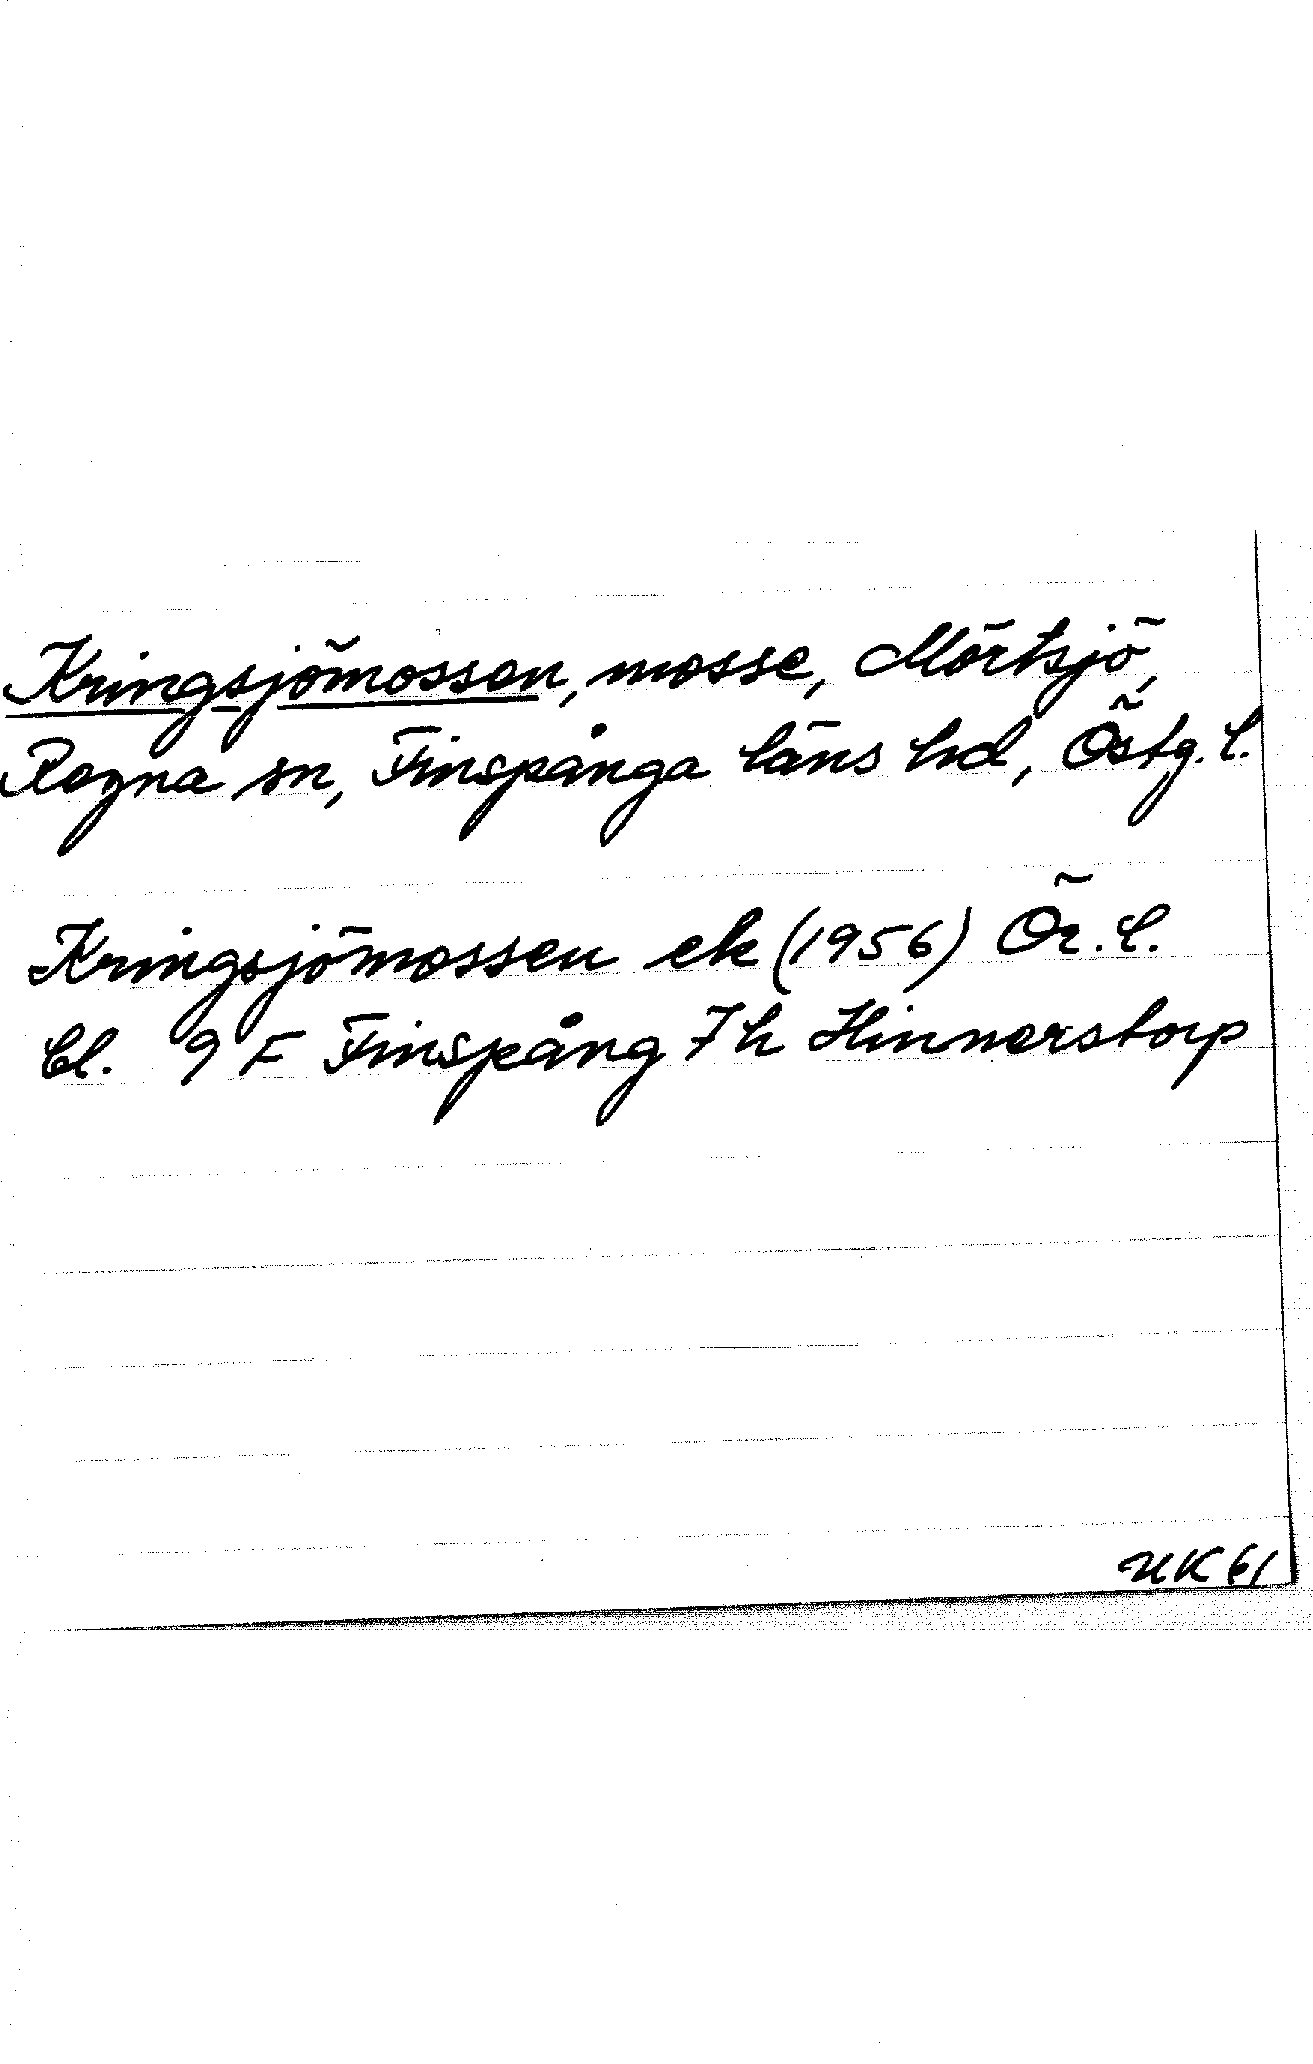 Kringsjömossen, mosse, Mörtsjö,
Regna sn, Finspånga läns hd, Östg. l.
Kringsjömossen ek (1956) Ör. l.
bl. 9 F Finspång 7 h Hinnerstorp
UK 61